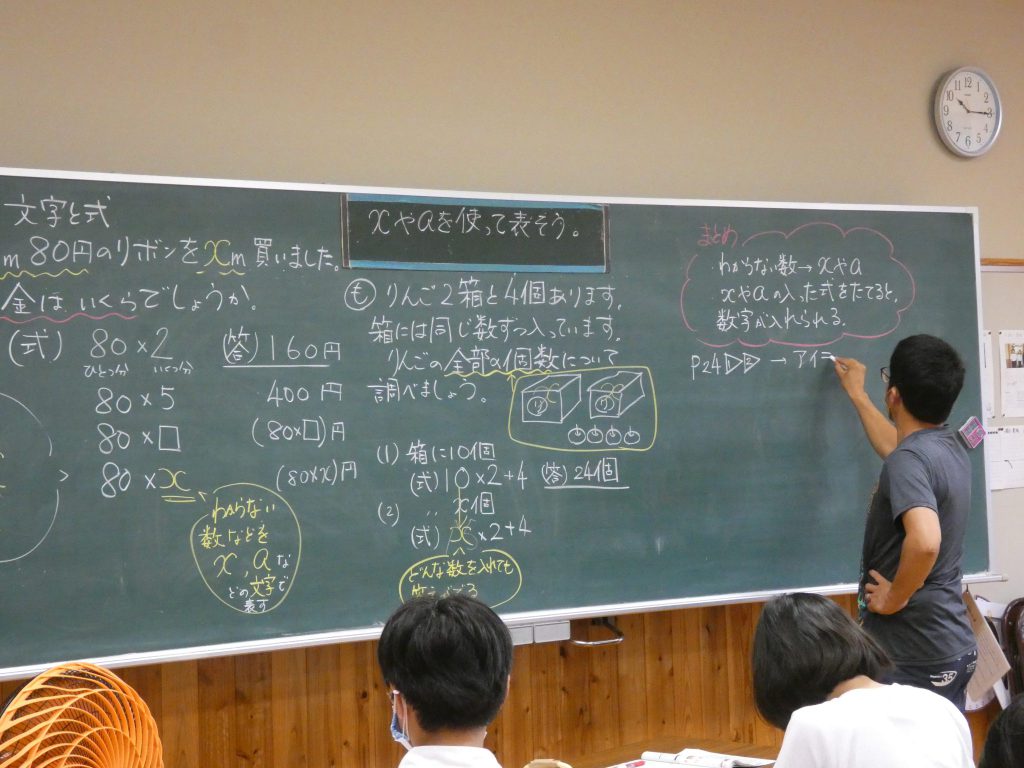 文字と式
m 80円のリボンをxm買いました。
金はいくらでしょうか。
(式) 80×2 (答) 160円
ひとつ分 いくつ分
80×5 400円
80×□ (80×□)円
80×x (80×x)円
わからない
数などを
x、aな
どの文字で
表す
xやaを使って表そう。
も りんご2箱と4個あります。
箱には同じ数ずつ入っています。
りんごの全部の個数について
調べましょう。
(1) 箱に10個
(式) 10×2+4 (答) 24個
(2) 〃 x個
(式) x×2+4
どんな数を入れても
まとめ
わからない数→xやa
xやaの入った式をたてると、
数字が入れられる。
P24 ▷1▷2 → アイ
35